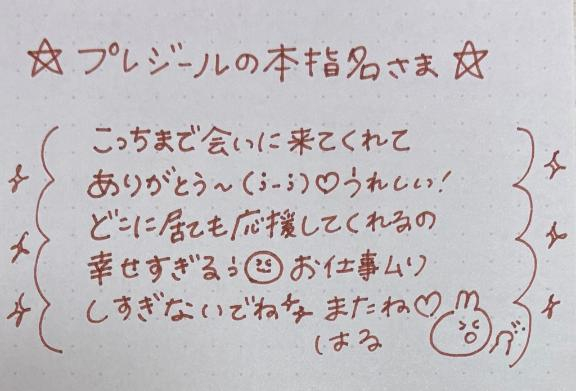 ☆プレジールの本指名さま☆
こっちまで会いに来てくれて
ありがとう〜(;-;)♡うれしい!
どこに居ても応援してくれるの
幸せすぎるぅ お仕事ムリ
しすぎないでね またね♡
はる